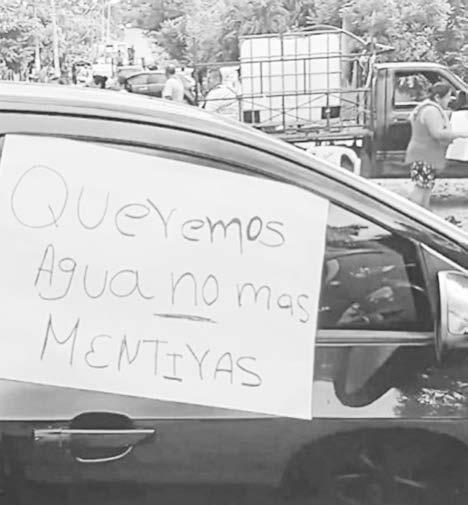 Queremos
Agua no mas
MENTIYAS